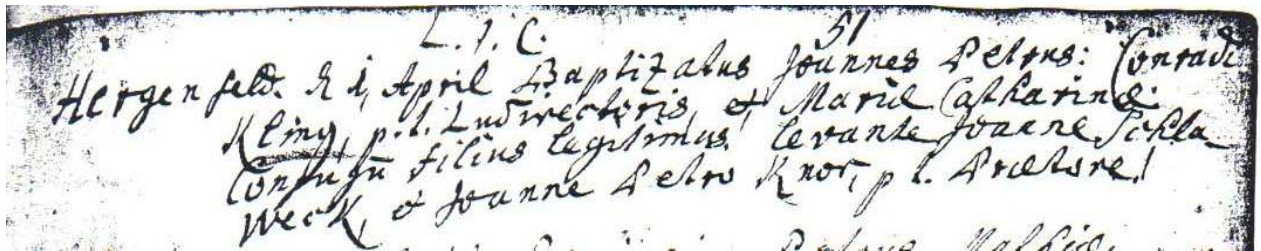 L. J. C. 51
Hergenfeld. d 1, April Baptizatus Joannes Petrus: Conradi
Kling, p. t. Ludirectoris, et Mariæ Catharinæ
Conjugū filius legitimus. levante Joanne Schla
weck, & Joanne Petro Knor, p t. Prætore!